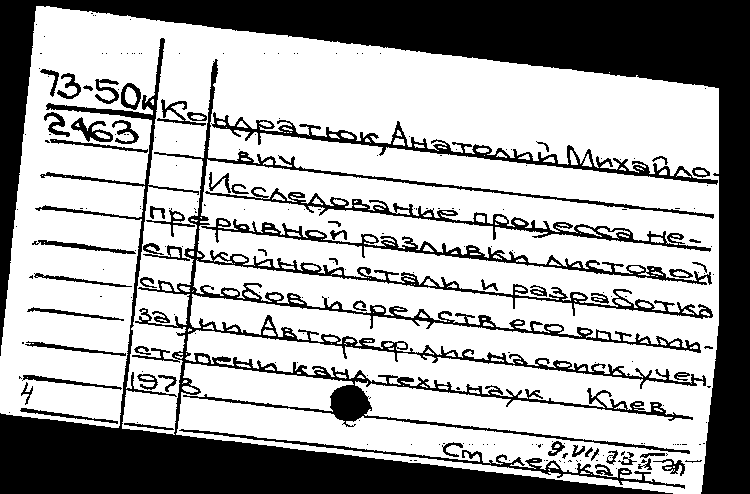 73-50к
2463
Кондратюк, Анатолий Михайло-
вич.
Исследование процесса не-
прерывной разливки листовой
спокойной стали и разработка
способов и средств его оптими-
зации. Автореф. дис. на соиск. учен.
степени канд. техн. наук. Киев,
1973.
4
См. след. карт.